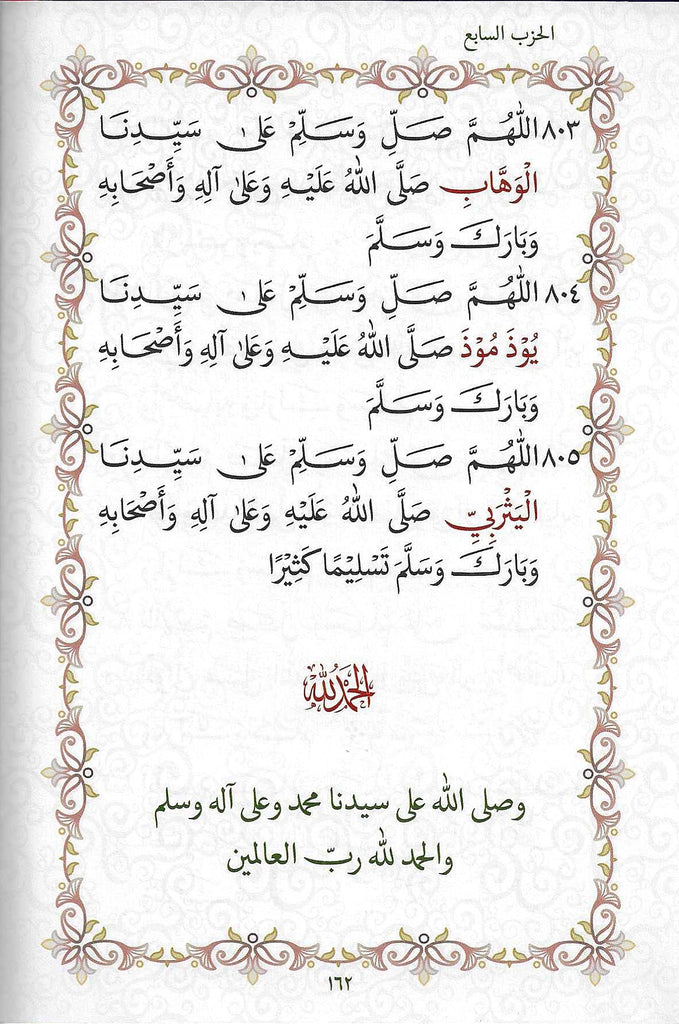 الحزب السابع
٨٠٣ اللّٰهُمَّ صَلِّ وَسَلِّمْ عَلىٰ سَيِّدِنَا
الْوَهَّابِ صَلَّى اللّٰهُ عَلَيْهِ وَعَلىٰ آلِهِ وَأَصْحَابِهِ
وَبَارَكَ وَسَلَّمَ
٨٠٤ اللّٰهُمَّ صَلِّ وَسَلِّمْ عَلىٰ سَيِّدِنَا
يُوْذَ مُوْذَ صَلَّى اللّٰهُ عَلَيْهِ وَعَلىٰ آلِهِ وَأَصْحَابِهِ
وَبَارَكَ وَسَلَّمَ
٨٠٥ اللّٰهُمَّ صَلِّ وَسَلِّمْ عَلىٰ سَيِّدِنَا
الْيَثْرَبِيِّ صَلَّى اللّٰهُ عَلَيْهِ وَعَلىٰ آلِهِ وَأَصْحَابِهِ
وَبَارَكَ وَسَلَّمَ تَسْلِيْمًا كَثِيْرًا
الحمد لله
وصلى الله على سيدنا محمد وعلى آله وسلم
والحمد لله ربّ العالمين
١٦٢